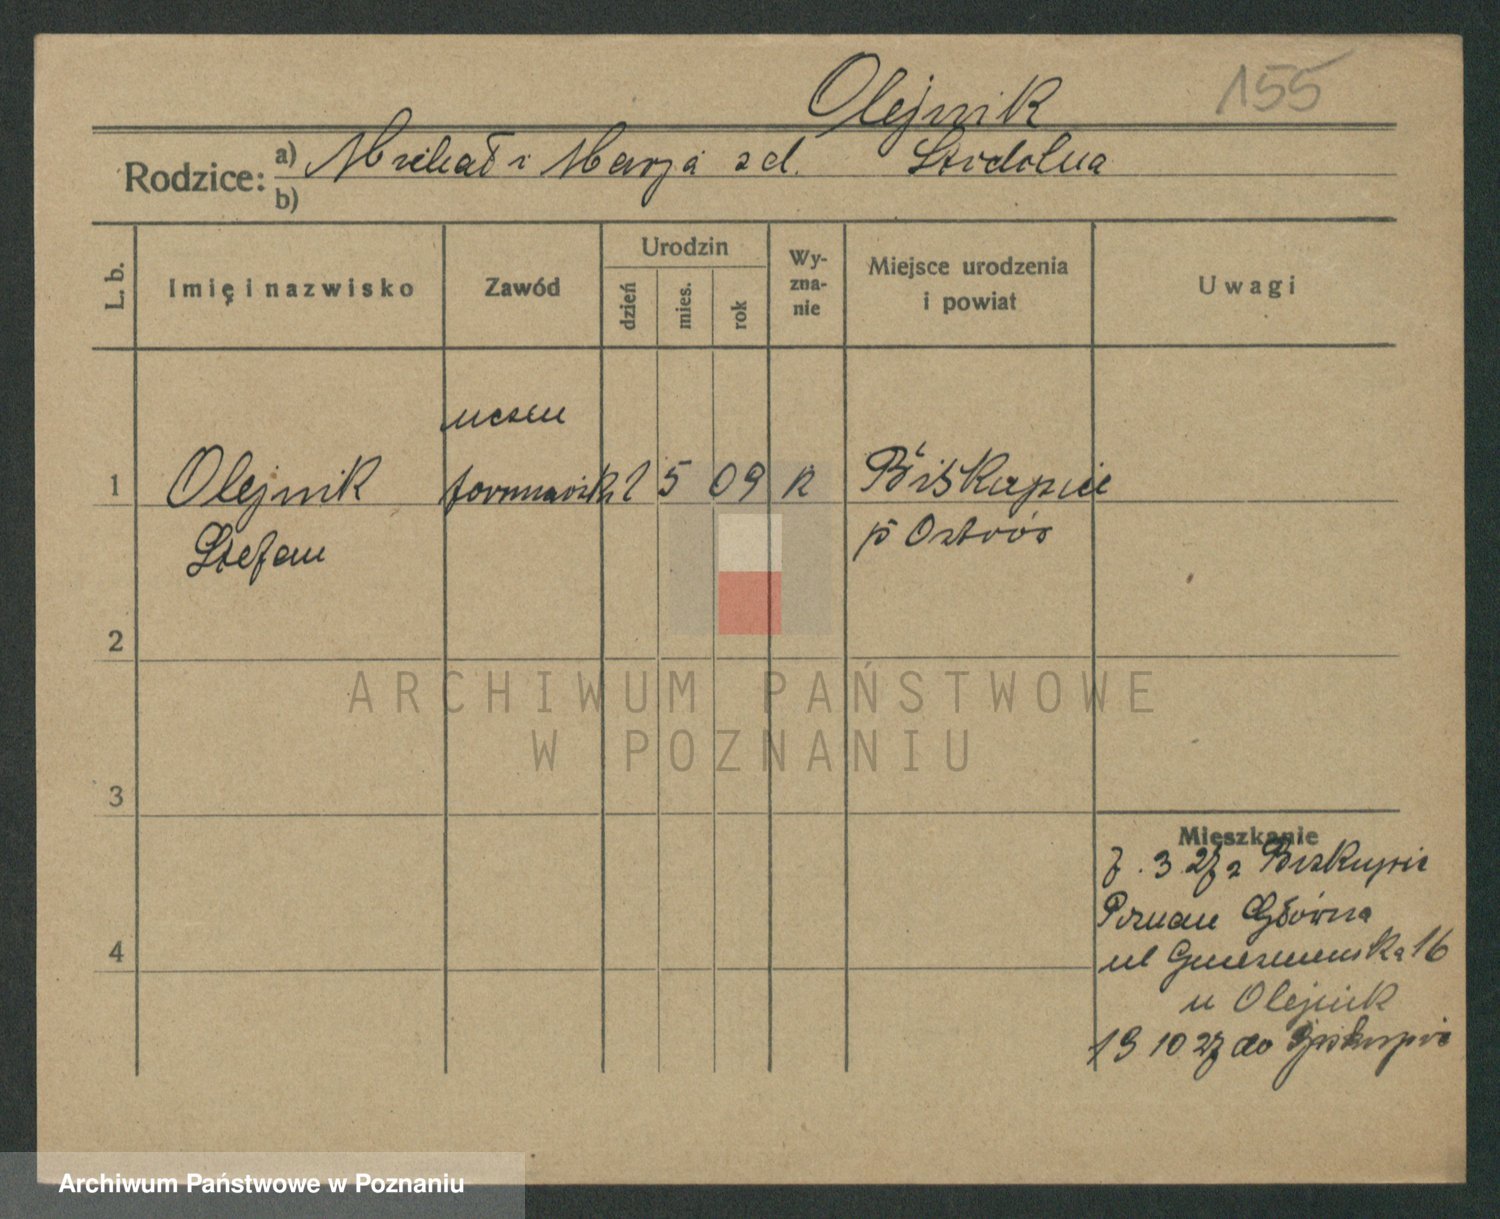 Olejnik 155
Rodzice: a) Michał i Marja zd. Stodolna
b)
L. b.
Imię i nazwisko
Zawód
Urodzin
dzień
mies.
rok
Wy-
zna-
nie
Miejsce urodzenia
i powiat
Uwagi
uczeń
1 Olejnik 2 5 09 k Biskupice
Stefan p Ostrów
2
ARCHIWUM PAŃSTWOWE
W POZNANIU
3
Mieszkanie
7. 3 27 z Biskupic
Poznań Główna
4
ul Gnieźnieńska 16
u Olejnik
19 10 27 do Biskupic
Archiwum Państwowe w Poznaniu